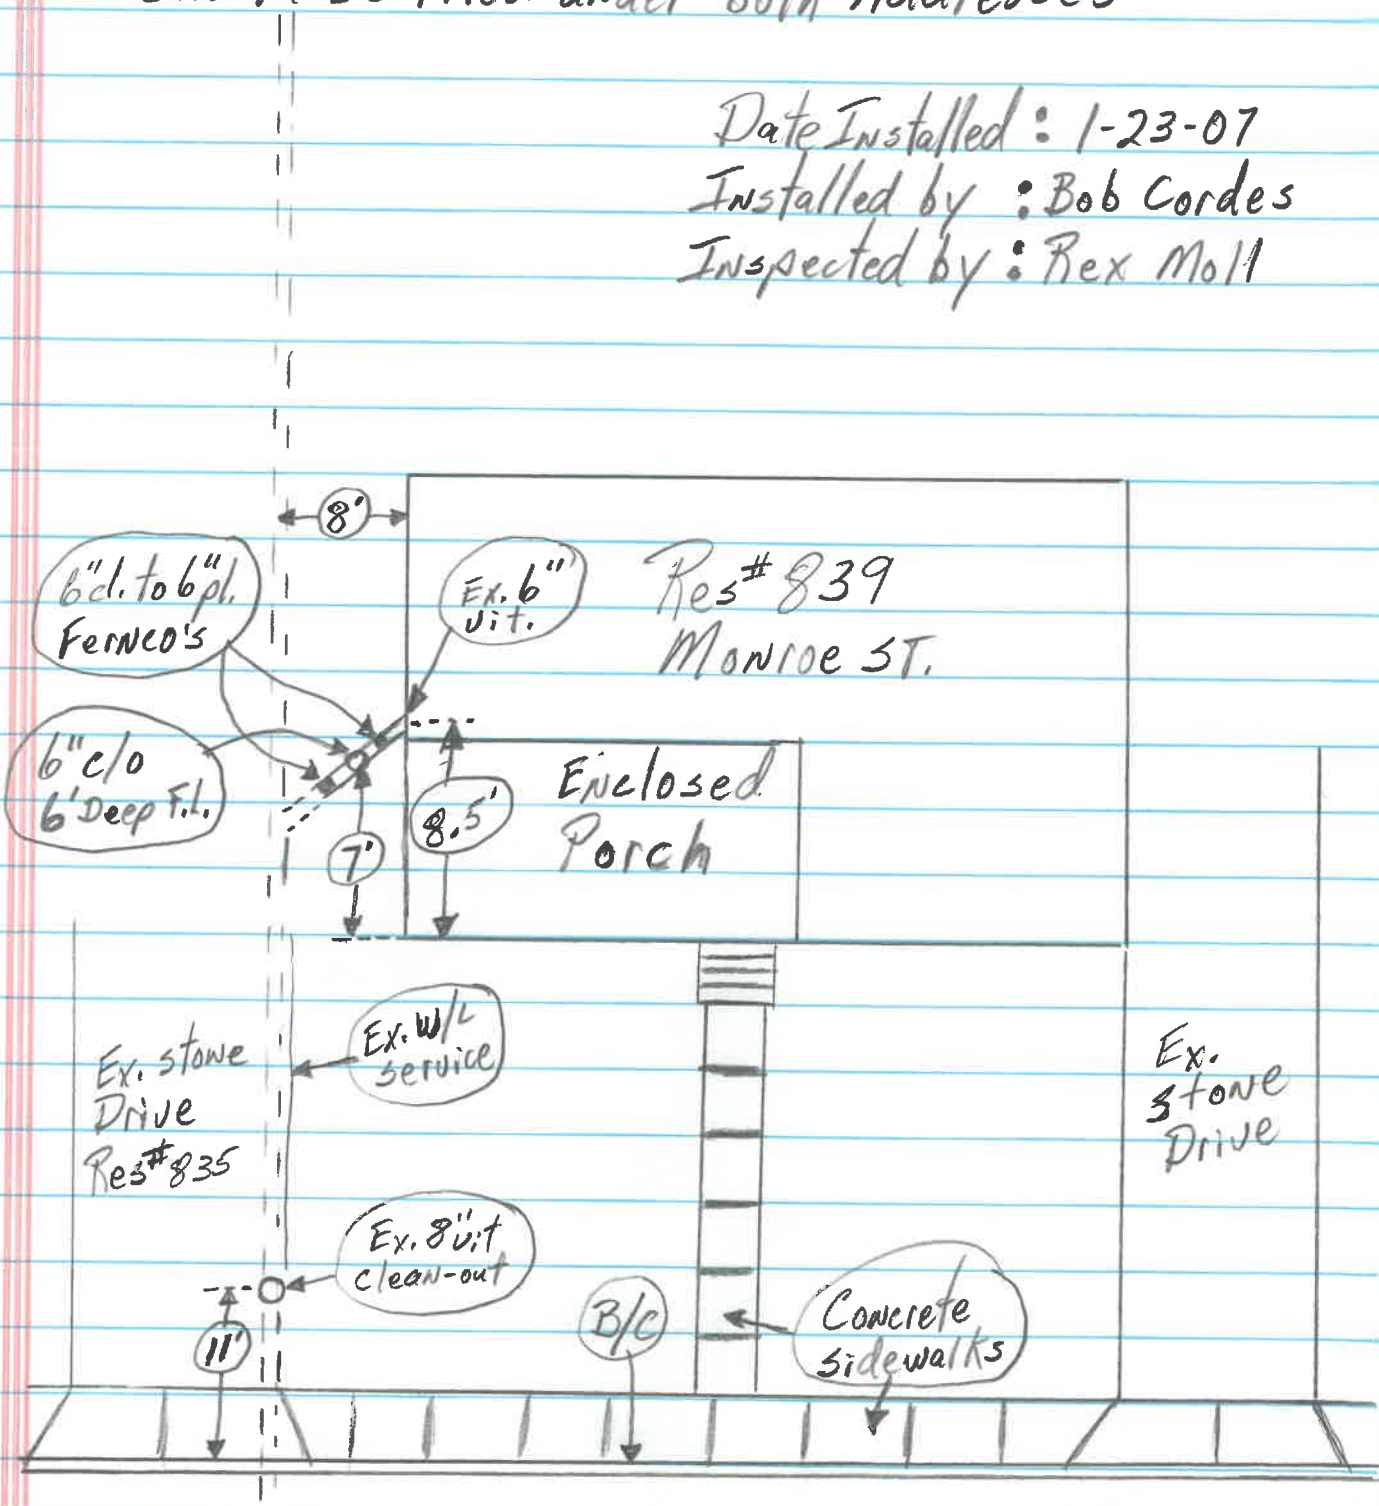 under Both Addresses
Date Installed : 1-23-07
Installed by : Bob Cordes
Inspected by : Rex Moll
8'
6"cl. to 6"pl.
Fernco's
Ex. 6"
vit.
Res# 839
Monroe ST.
6" c/o
6' Deep F.L.
8.5'
7'
Enclosed
Porch
Ex. W/L
service
Ex. stone
Drive
Res# 835
Ex.
stone
Drive
Ex. 8" vit
clean-out
11'
B/C
Concrete
sidewalks